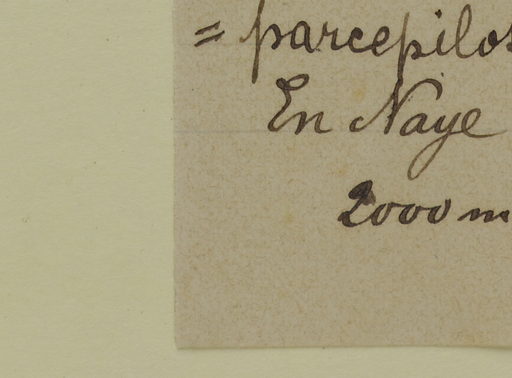 = parcepilos
En Naye
2000 m